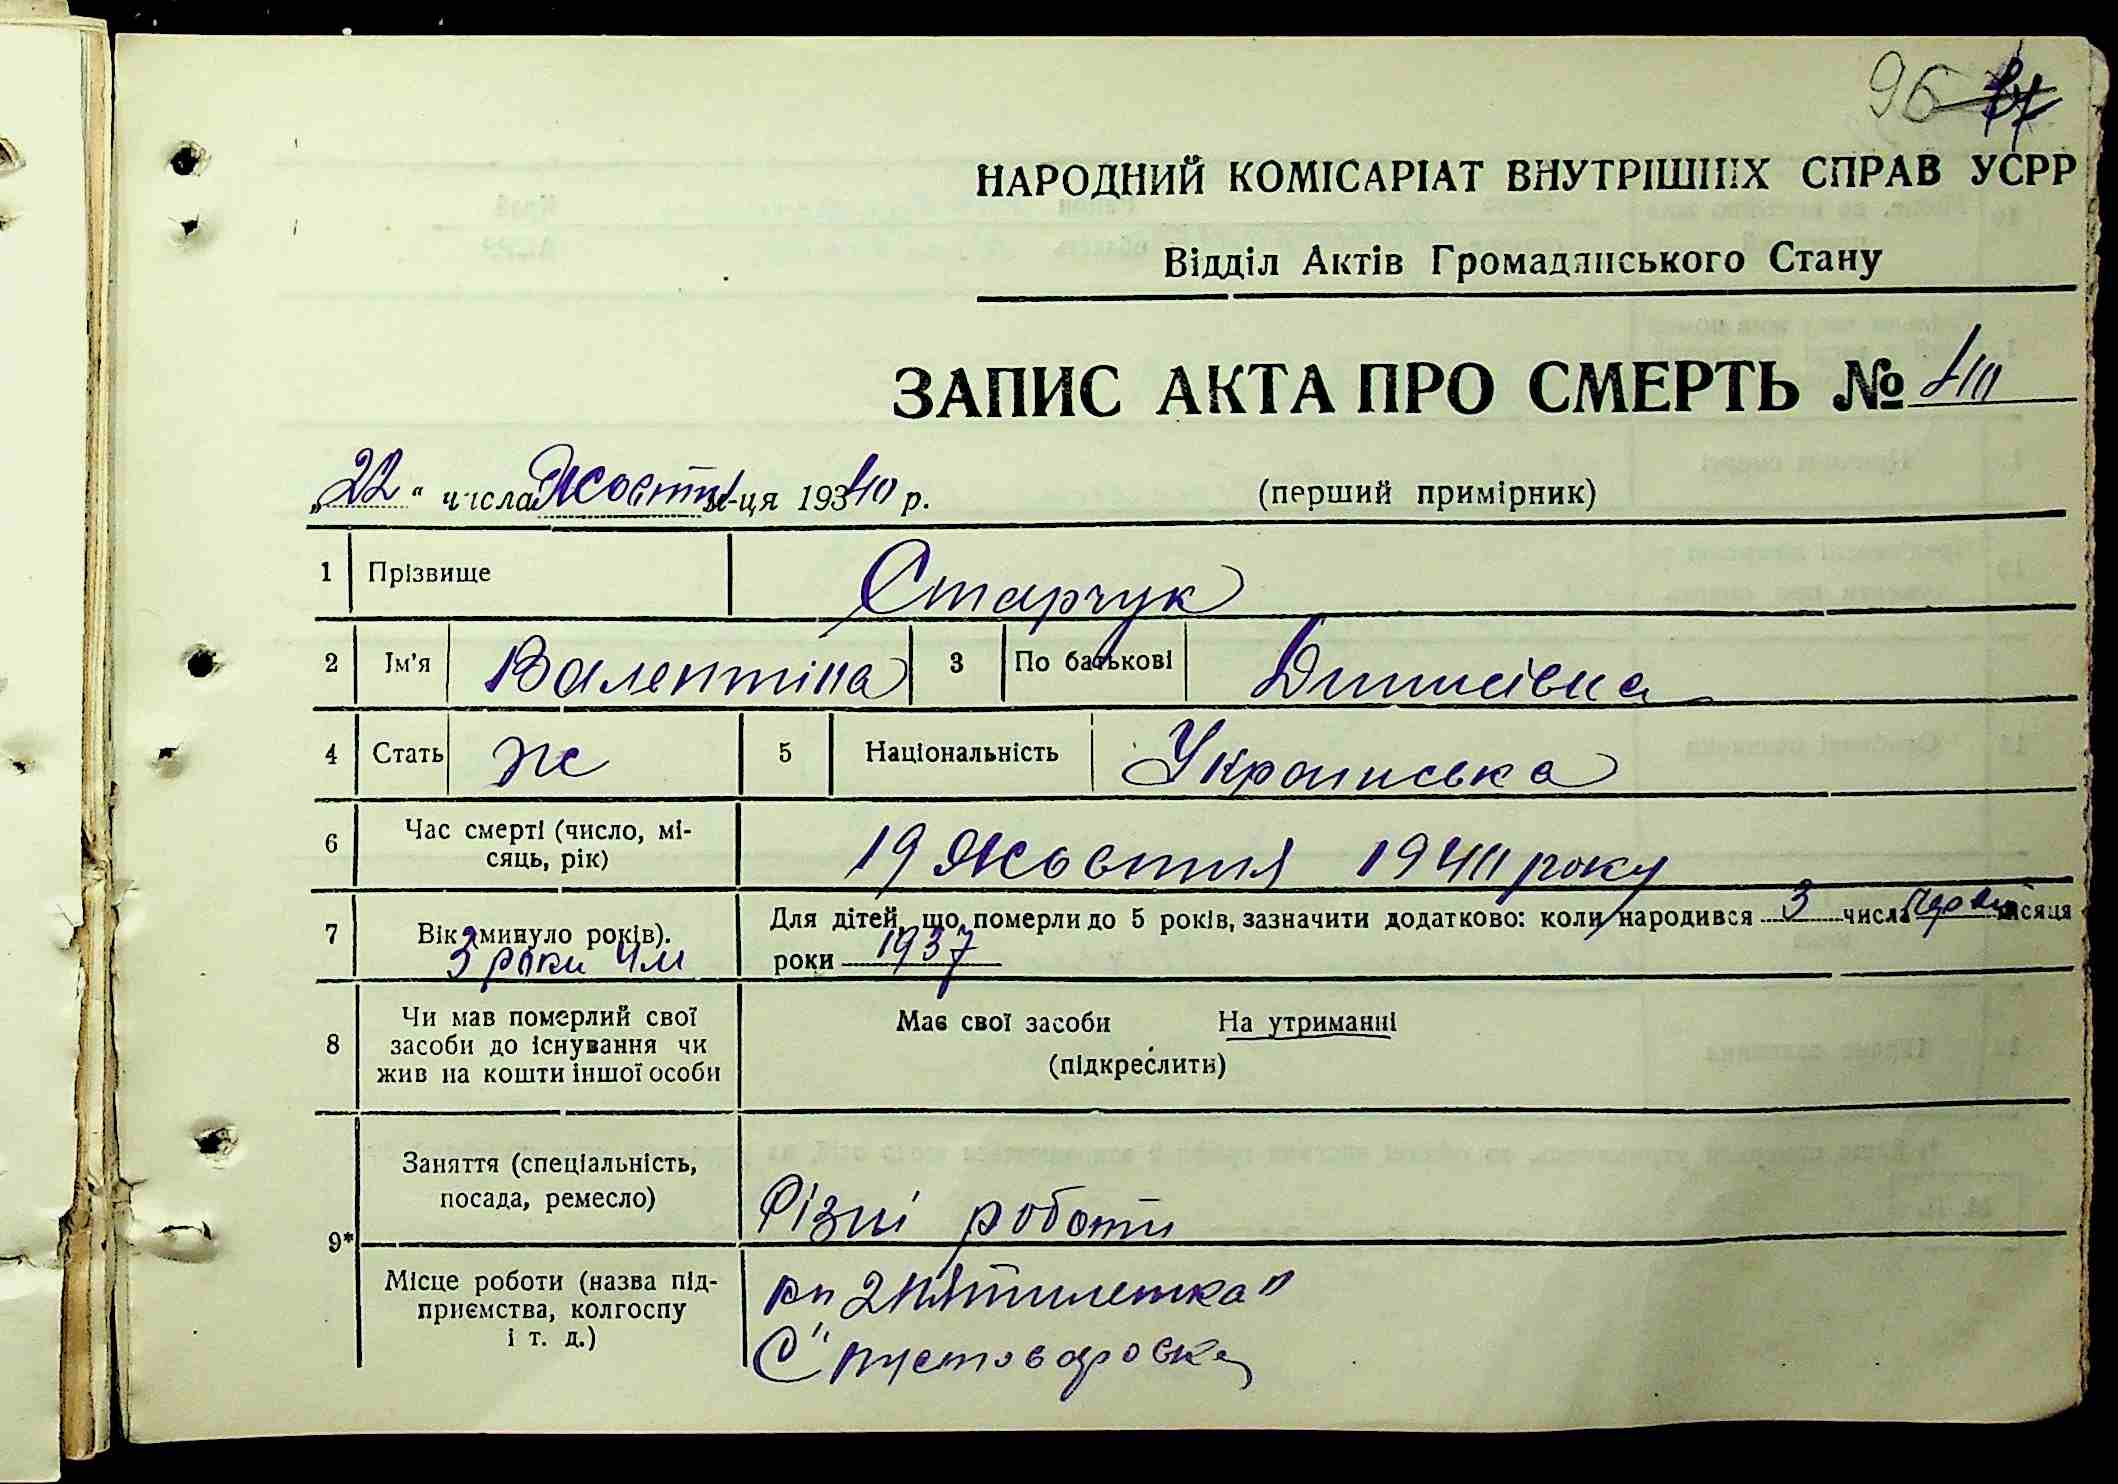 96
НАРОДНИЙ КОМІСАРІАТ ВНУТРІШНІХ СПРАВ УСРР
Відділ Актів Громадянського Стану
ЗАПИС АКТА ПРО СМЕРТЬ №
„22“ числа Жовтня м-ця 1940 р. (перший примірник)
1 Прізвище Старчук
2 Ім'я Валентіна 3 По батькові
4 Стать ж 5 Національність Українська
6 Час смерті (число, мі-
сяць, рік) 19 Жовтня 1940 року
7 Вік (минуло років). Для дітей, що померли до 5 років, зазначити додатково: коли народився 3 числа місяця
3 роки 4 м роки 1937
8 Чи мав померлий свої
засоби до існування чи
жив на кошти іншої особи
Має свої засоби На утриманні
(підкреслити)
9*
Заняття (спеціальність,
посада, ремесло) Різні роботи
Місце роботи (назва під-
приємства, колгоспу
і т. д.)
кп 2 пятилетка"
С" пустоваровка